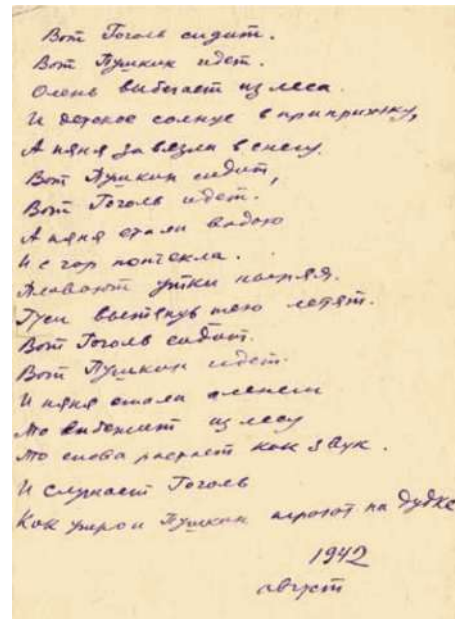 Вот Гоголь сидит.
Вот Пушкин идет.
Олень выбегает из леса.
И детское солнце вприпрыжку,
А няня завязла в снегу.
Вот Пушкин сидит,
Вот Гоголь идет.
А няня стала водою
И с гор потекла.
Плавают утки ныряя.
Гуси вытянув шею летят.
Вот Гоголь сидит.
Вот Пушкин идет.
И няня стала оленем
То выбежит из лесу
То снова растает как звук.
И слушает Гоголь
Как утро и Пушкин играют на дудке
1942
август